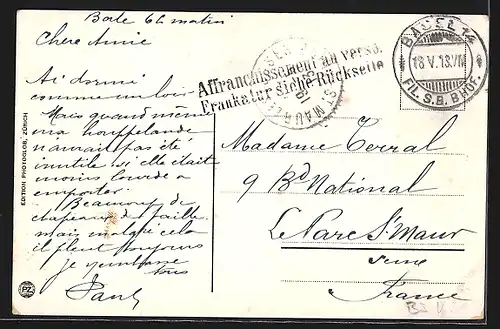 Basle 6 h matin
Chere Amie
Ai dormi
comme un loir
Mais quand même
ma houppelande
n'aurait pas été
inutile si elle était
moins lourde à
emporter.
Beaucoup de
chapeaux de paille
mais malgré cela
il pleut toujours
Je
tous
Paul
EDITION PHOTOGLOB, ZÜRICH
PZ
Affranchissement au verso.
Frankatur siehe Rückseite
ST MAUR
BASEL 14
FIL. S.B. BHOF.
Madame Terral
9 Bd National
Le Parc St Maur
Seine
France